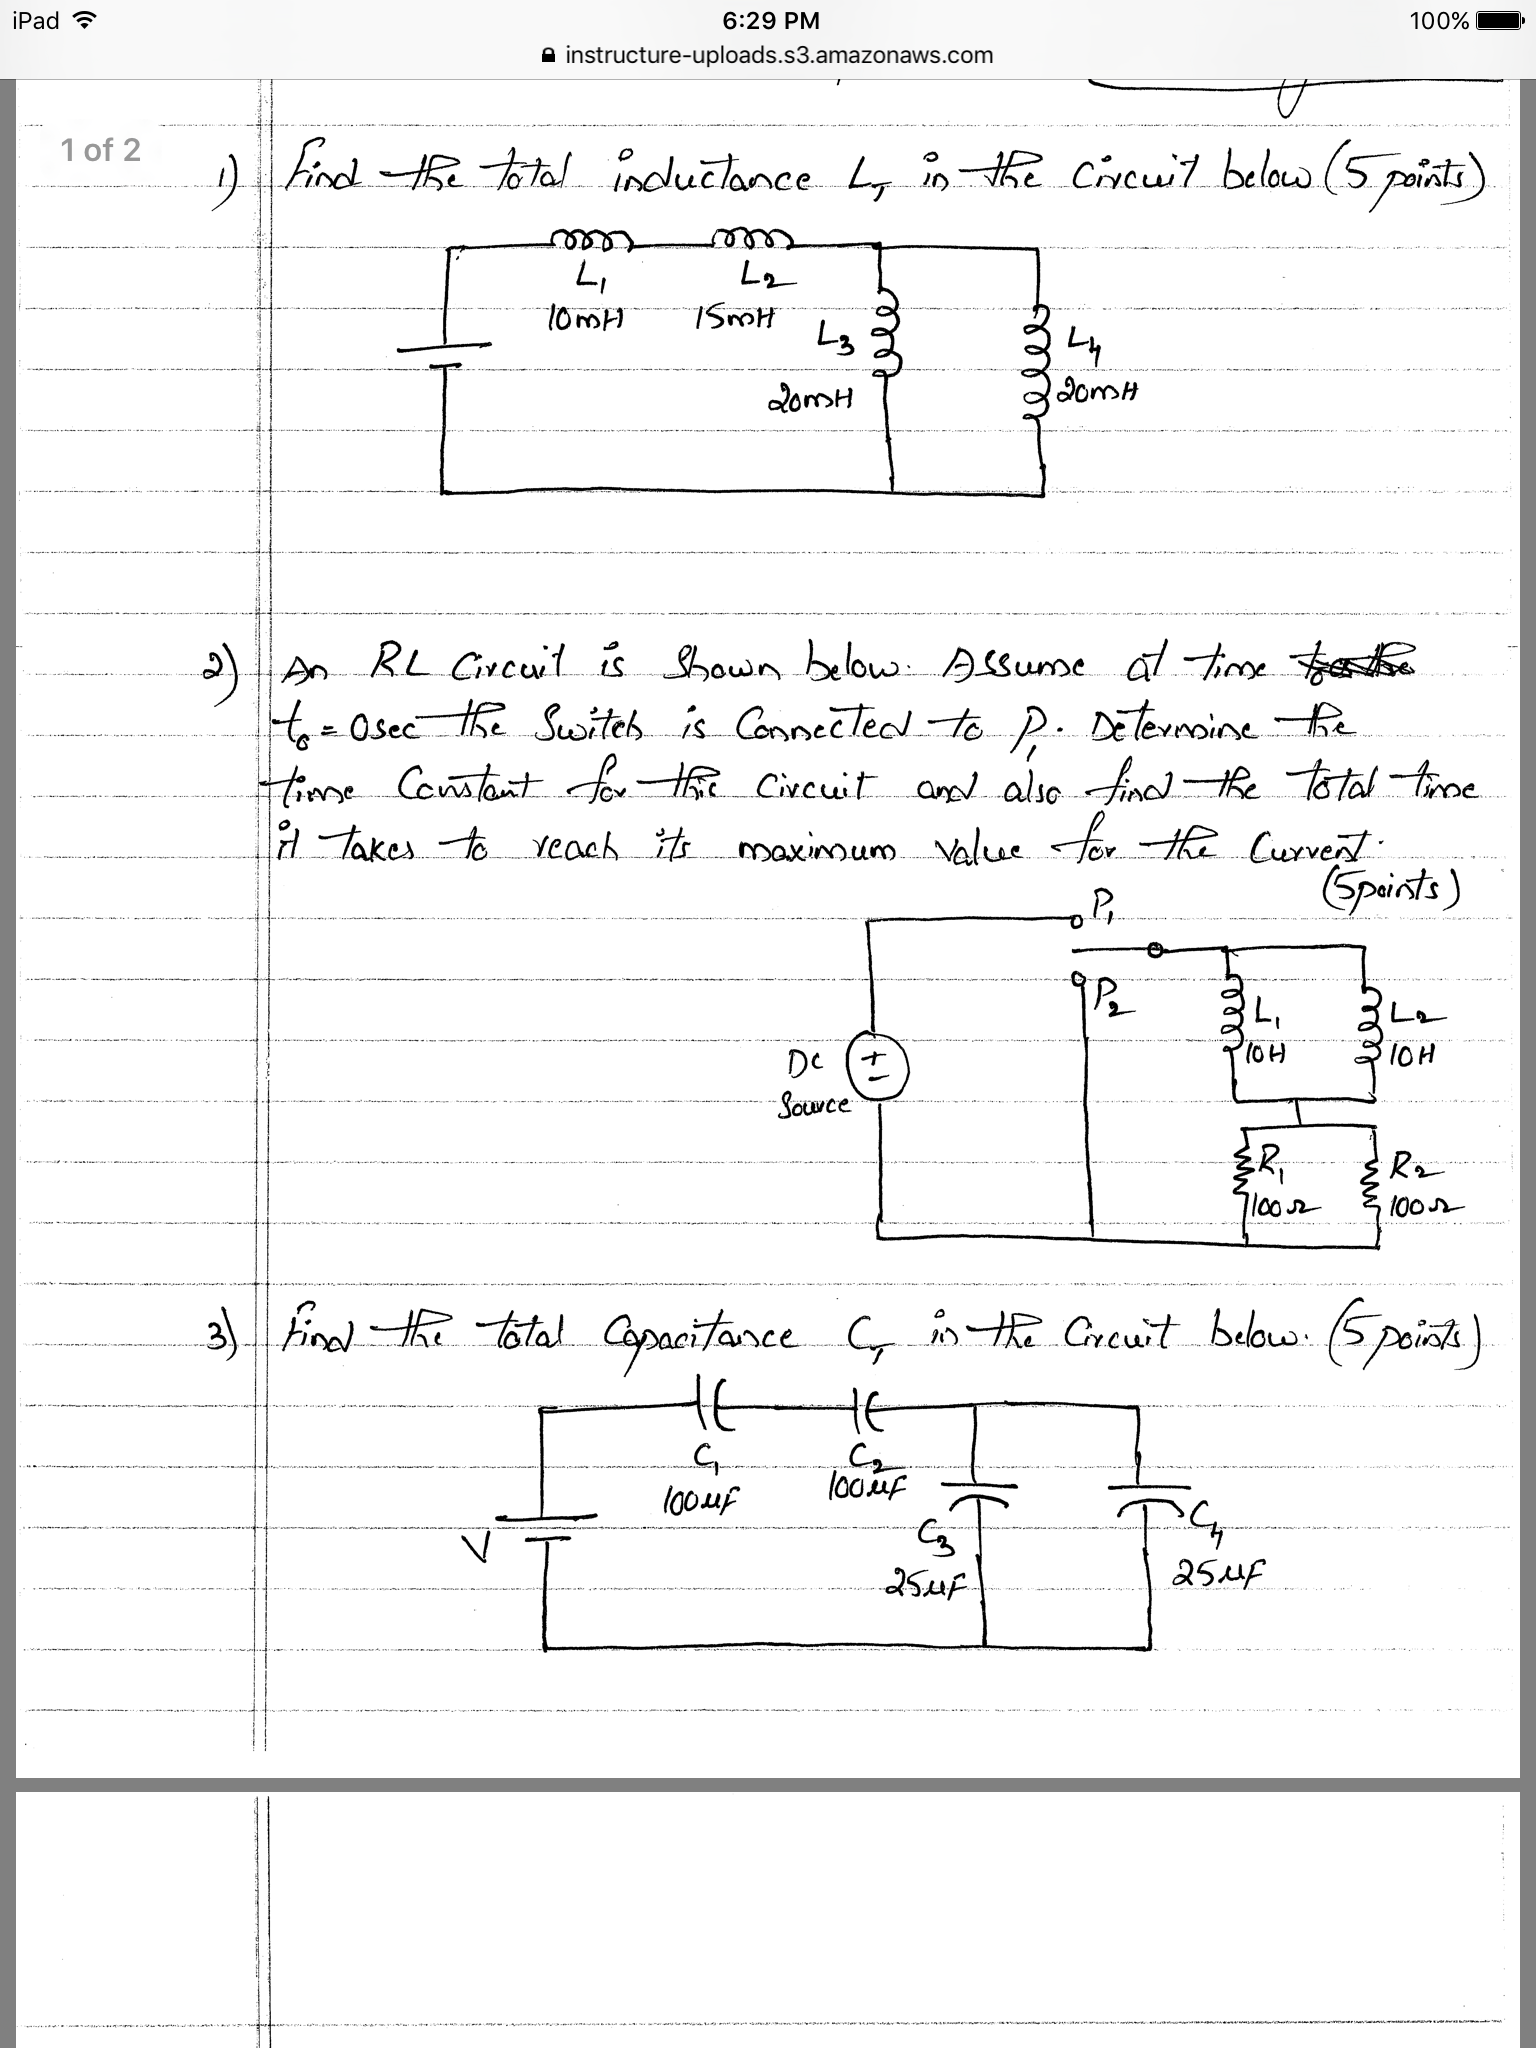 iPad 6:29 PM 100%
instructure-uploads.s3.amazonaws.com
1 of 2
1) Find the total inductance L_T in the circuit below (5 points)
L₁ L₂
10mH 15mH
L₃ L₄
20mH 20mH
2) An RL Circuit is shown below. Assume at time
t₀ = 0sec the switch is connected to P₁. Determine the
time constant for this circuit and also find the total time
it takes to reach its maximum value for the current.
(5points)
P₁
P₂
L₁ L₂
10H 10H
DC
Source
R₁ R₂
100Ω 100Ω
3) Find the total Capacitance C_T in the Circuit below. (5 points)
C₁ C₂
100µF 100µF
V C₃ C₄
25µF 25µF